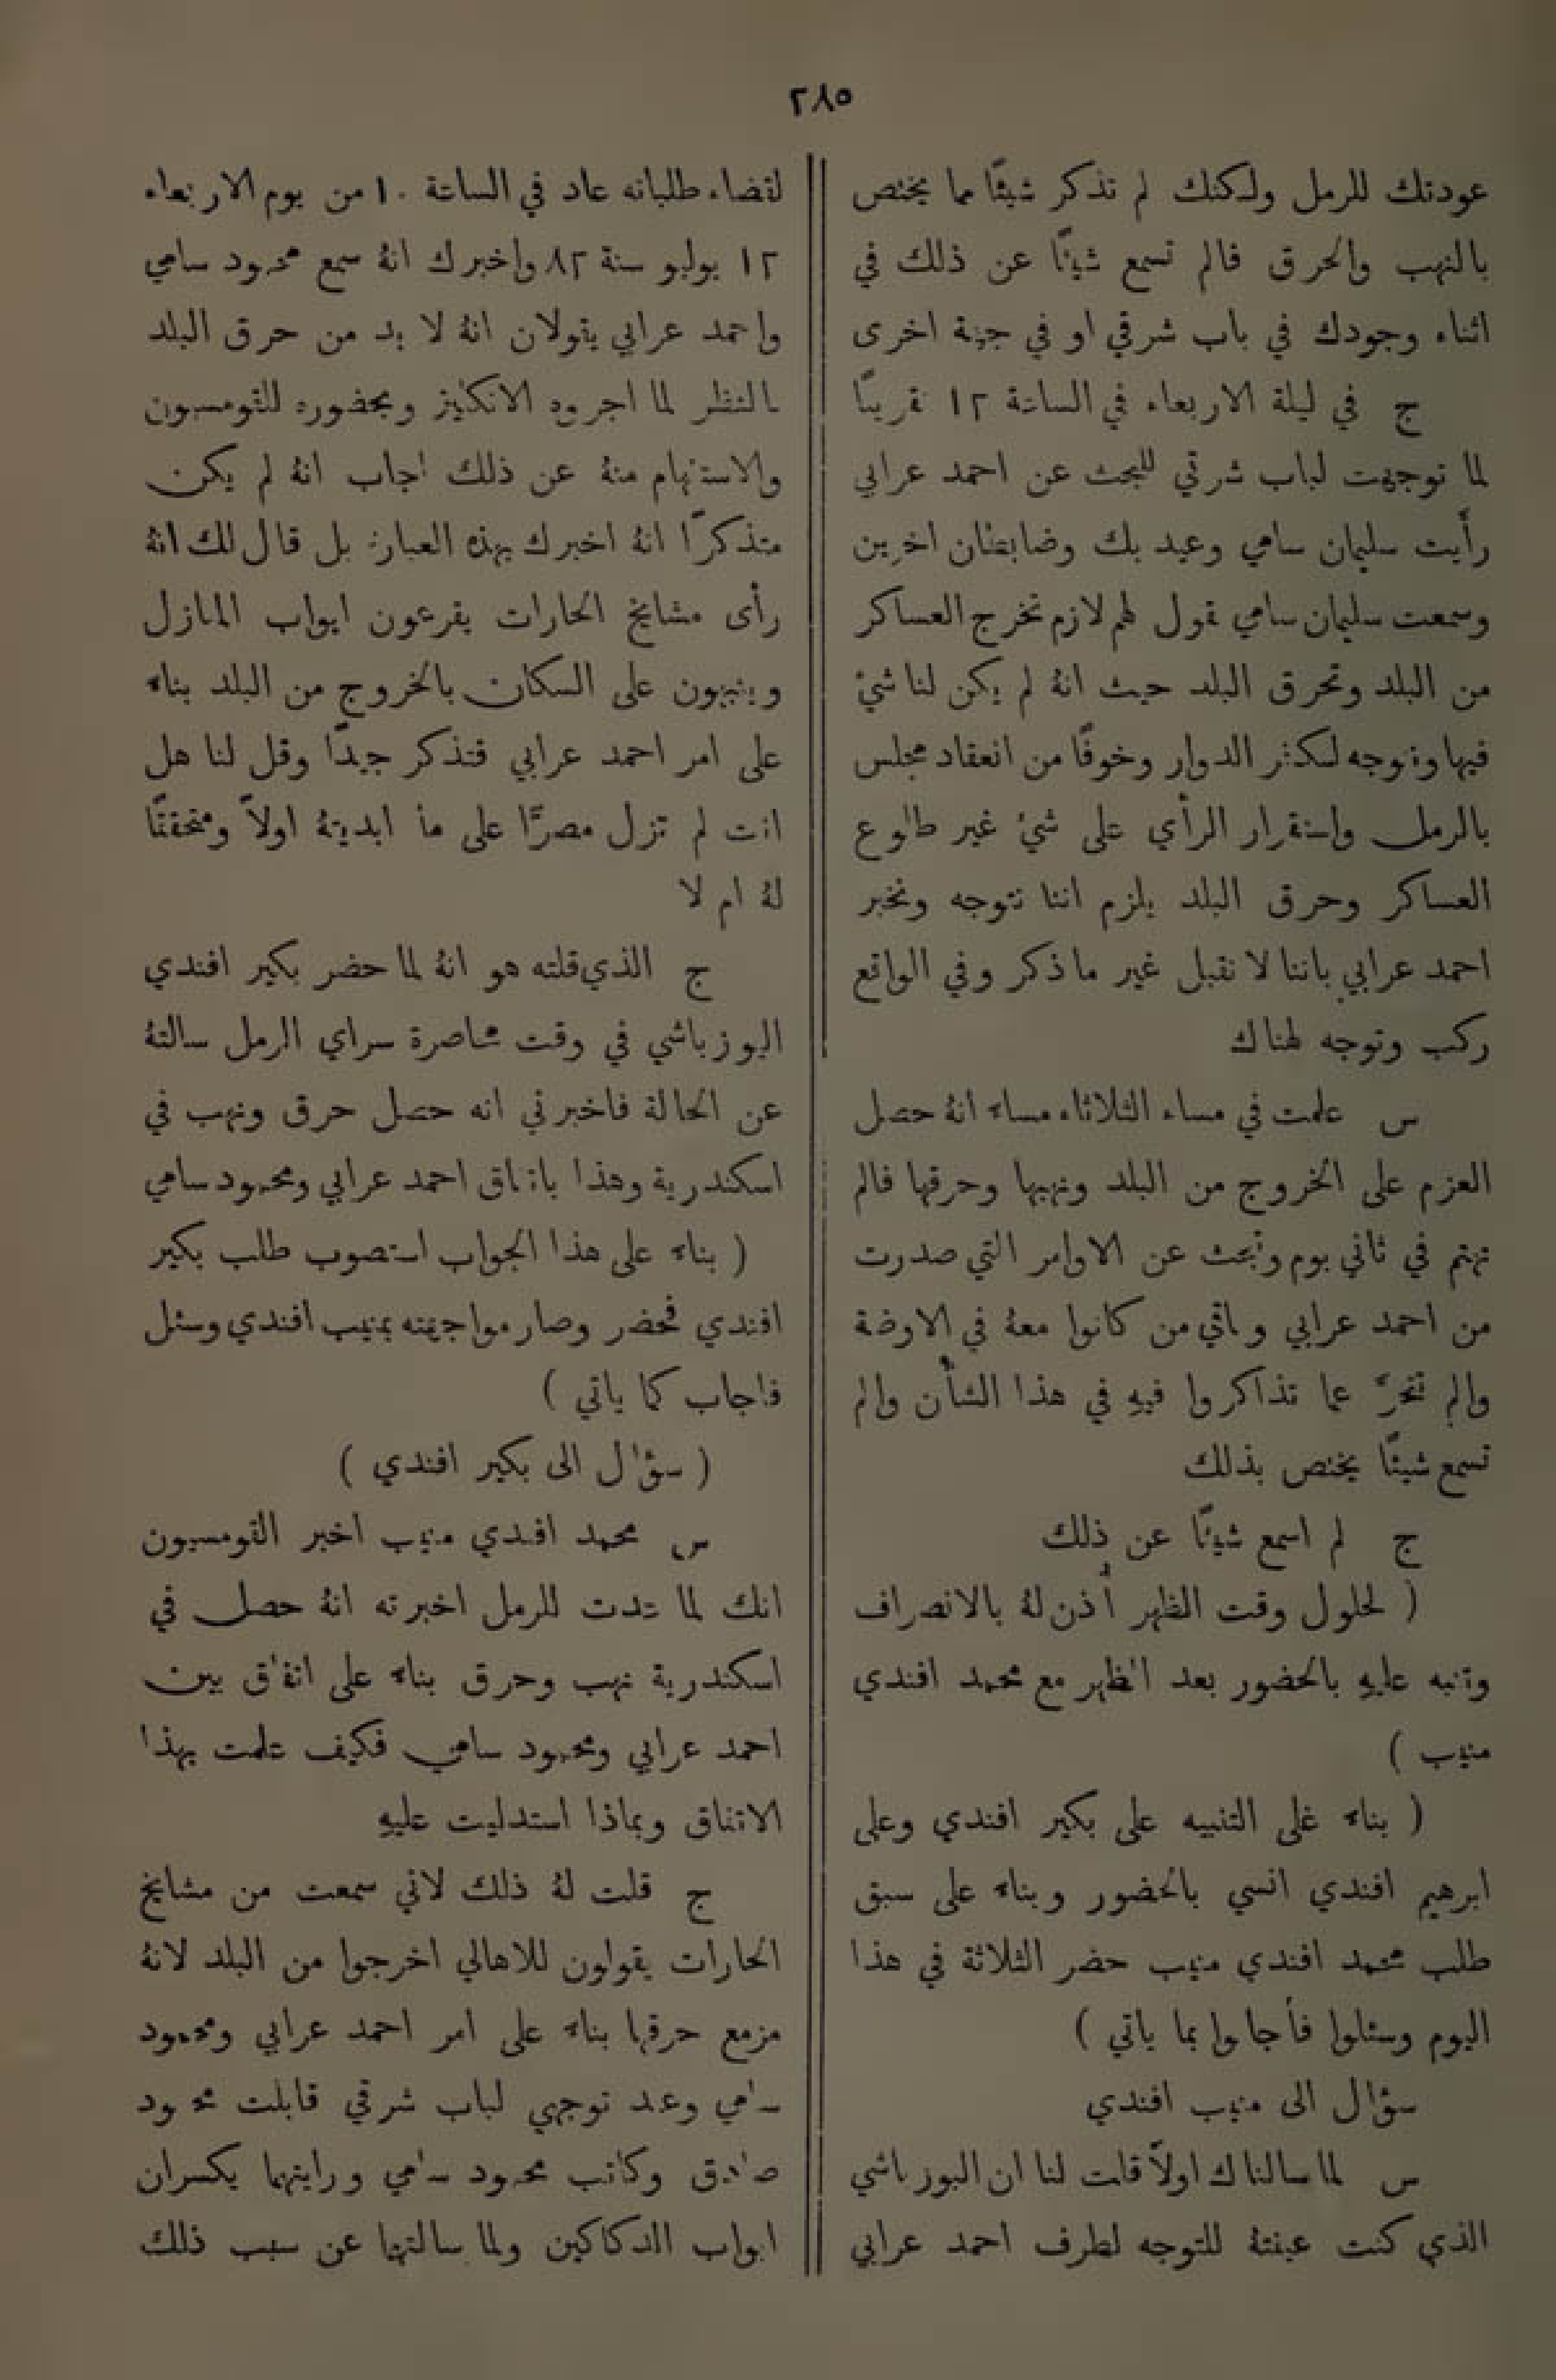 ٢٨٥
عودتك للرمل ولكنك لم تذكر شيئًا مما يختص
بالنهب والحرق فالم تسمع شيئًا عن ذلك في
اثناء وجودك في باب شرقي او في جهة اخرى
ج في ليلة الاربعاء في الساعة ١٢ تقريبًا
لما توجهت لباب شرقي للبحث عن احمد عرابي
رأيت سليمان سامي وعيد بك وضابطان اخرين
وسمعت سليمان سامي يقول لهم لازم تخرج العساكر
من البلد وتحرق البلد حيث انهُ لم يكن لنا شيءٌ
فيها وتوجه لكفر الدوار وخوفًا من انعقاد مجلس
بالرمل واستقرار الرأي على شيءٍ غير طلوع
العساكر وحرق البلد يلزم اننا نتوجه ونخبر
احمد عرابي باننا لا نقبل غير ما ذكر وفي الواقع
ركب وتوجه لهناك
س علمت في مساء الثلاثاء مساءً انهُ حصل
العزم على الخروج من البلد ونهبها وحرقها فالم
تهتم في ثاني يوم وتبحث عن الاوامر التي صدرت
من احمد عرابي وباقي من كانوا معهُ في الاوضة
والم تتحرَّ عما تذاكروا فيهِ في هذا الشأن والم
تسمع شيئًا يختص بذلك
ج لم اسمع شيئًا عن ذلك
( لحلول وقت الظهر أُذن لهُ بالانصراف
وتنبه عليهِ بالحضور بعد الظهر مع محمد افندي
منيب )
( بناءً على التنبيه على بكير افندي وعلى
ابرهيم افندي انسي بالحضور وبناءً على سبق
طلب محمد افندي منيب حضر الثلاثة في هذا
اليوم وسئلوا فأجابوا بما ياتي )
سؤال الى منيب افندي
س لما سالناك اولاً قلت لنا ان اليوزباشي
الذي كنت عينتهُ للتوجه لطرف احمد عرابي
لقضاء طلباته عاد في الساعة ١٠ من يوم الاربعاء
١٢ يوليو سنة ٨٢ واخبرك انهُ سمع محمود سامي
واحمد عرابي يقولان انهُ لا بد من حرق البلد
بالنظر لما اجروه الانكليز وبحضوره للقومسيون
والاستفهام منهُ عن ذلك اجاب انهُ لم يكن
متذكرًا انهُ اخبرك بهذه العبارة بل قال لك انهُ
رأى مشايخ الحارات يقرعون ابواب المنازل
وينبهون على السكان بالخروج من البلد بناءً
على امر احمد عرابي فتذكر جيدًا وقل لنا هل
انت لم تزل مصرًّا على ما ابديتهُ اولاً ومتحققًا
لهُ ام لا
ج الذي قلته هو انهُ لما حضر بكير افندي
اليوزباشي في وقت محاصرة سراي الرمل سالتهُ
عن الحالة فاخبرني انه حصل حرق ونهب في
اسكندرية وهذا باتفاق احمد عرابي ومحمود سامي
( بناءً على هذا الجواب استصوب طلب بكير
افندي فحضر وصار مواجهته بمنيب افندي وسئل
فاجاب كما ياتي )
( سؤال الى بكير افندي )
س محمد افندي منيب اخبر القومسيون
انك لما عدت للرمل اخبرته انهُ حصل في
اسكندرية نهب وحرق بناءً على اتفاق بين
احمد عرابي ومحمود سامي فكيف علمت بهذا
الاتفاق وبماذا استدليت عليهِ
ج قلت لهُ ذلك لاني سمعت من مشايخ
الحارات يقولون للاهالي اخرجوا من البلد لانهُ
مزمع حرقها بناءً على امر احمد عرابي ومحمود
سامي وعند توجهي لباب شرقي قابلت محمود
صادق وكاتب محمود سامي ورايتهما يكسران
ابواب الدكاكين ولما سالتهما عن سبب ذلك